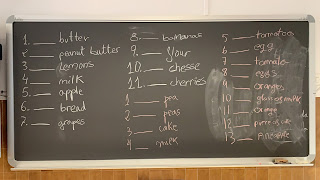 1. ___ butter
2 ___ peanut butter
3 ___ lemons
4 ___ milk
5 ___ apple
6 ___ bread
7. ___ grapes
8. ___ bananas
9. ___ flour
10. ___ chesse
11. ___ cherries
1 ___ pea
2 ___ peas
3 ___ cake
4 ___ milk
5 ___ tomatoes
6 ___ egg
7 ___ tomato
8 ___ eggs
9 ___ oranges
10 ___ glass of milk
11 ___ orange
12 ___ piece of
13 ___ Pineapple